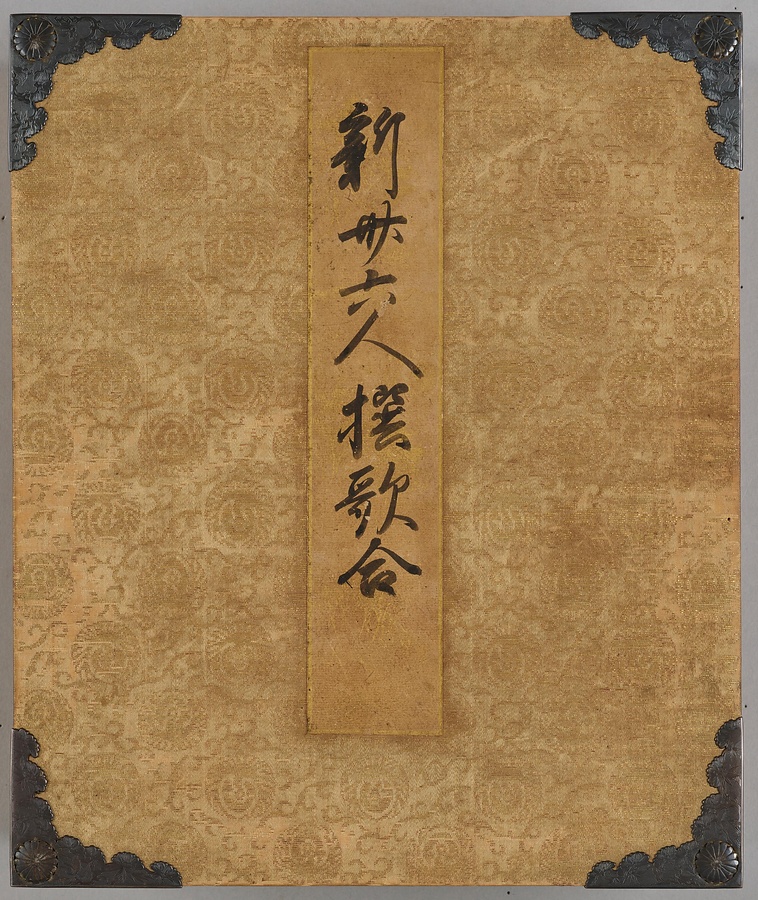 新卅六人撰歌合